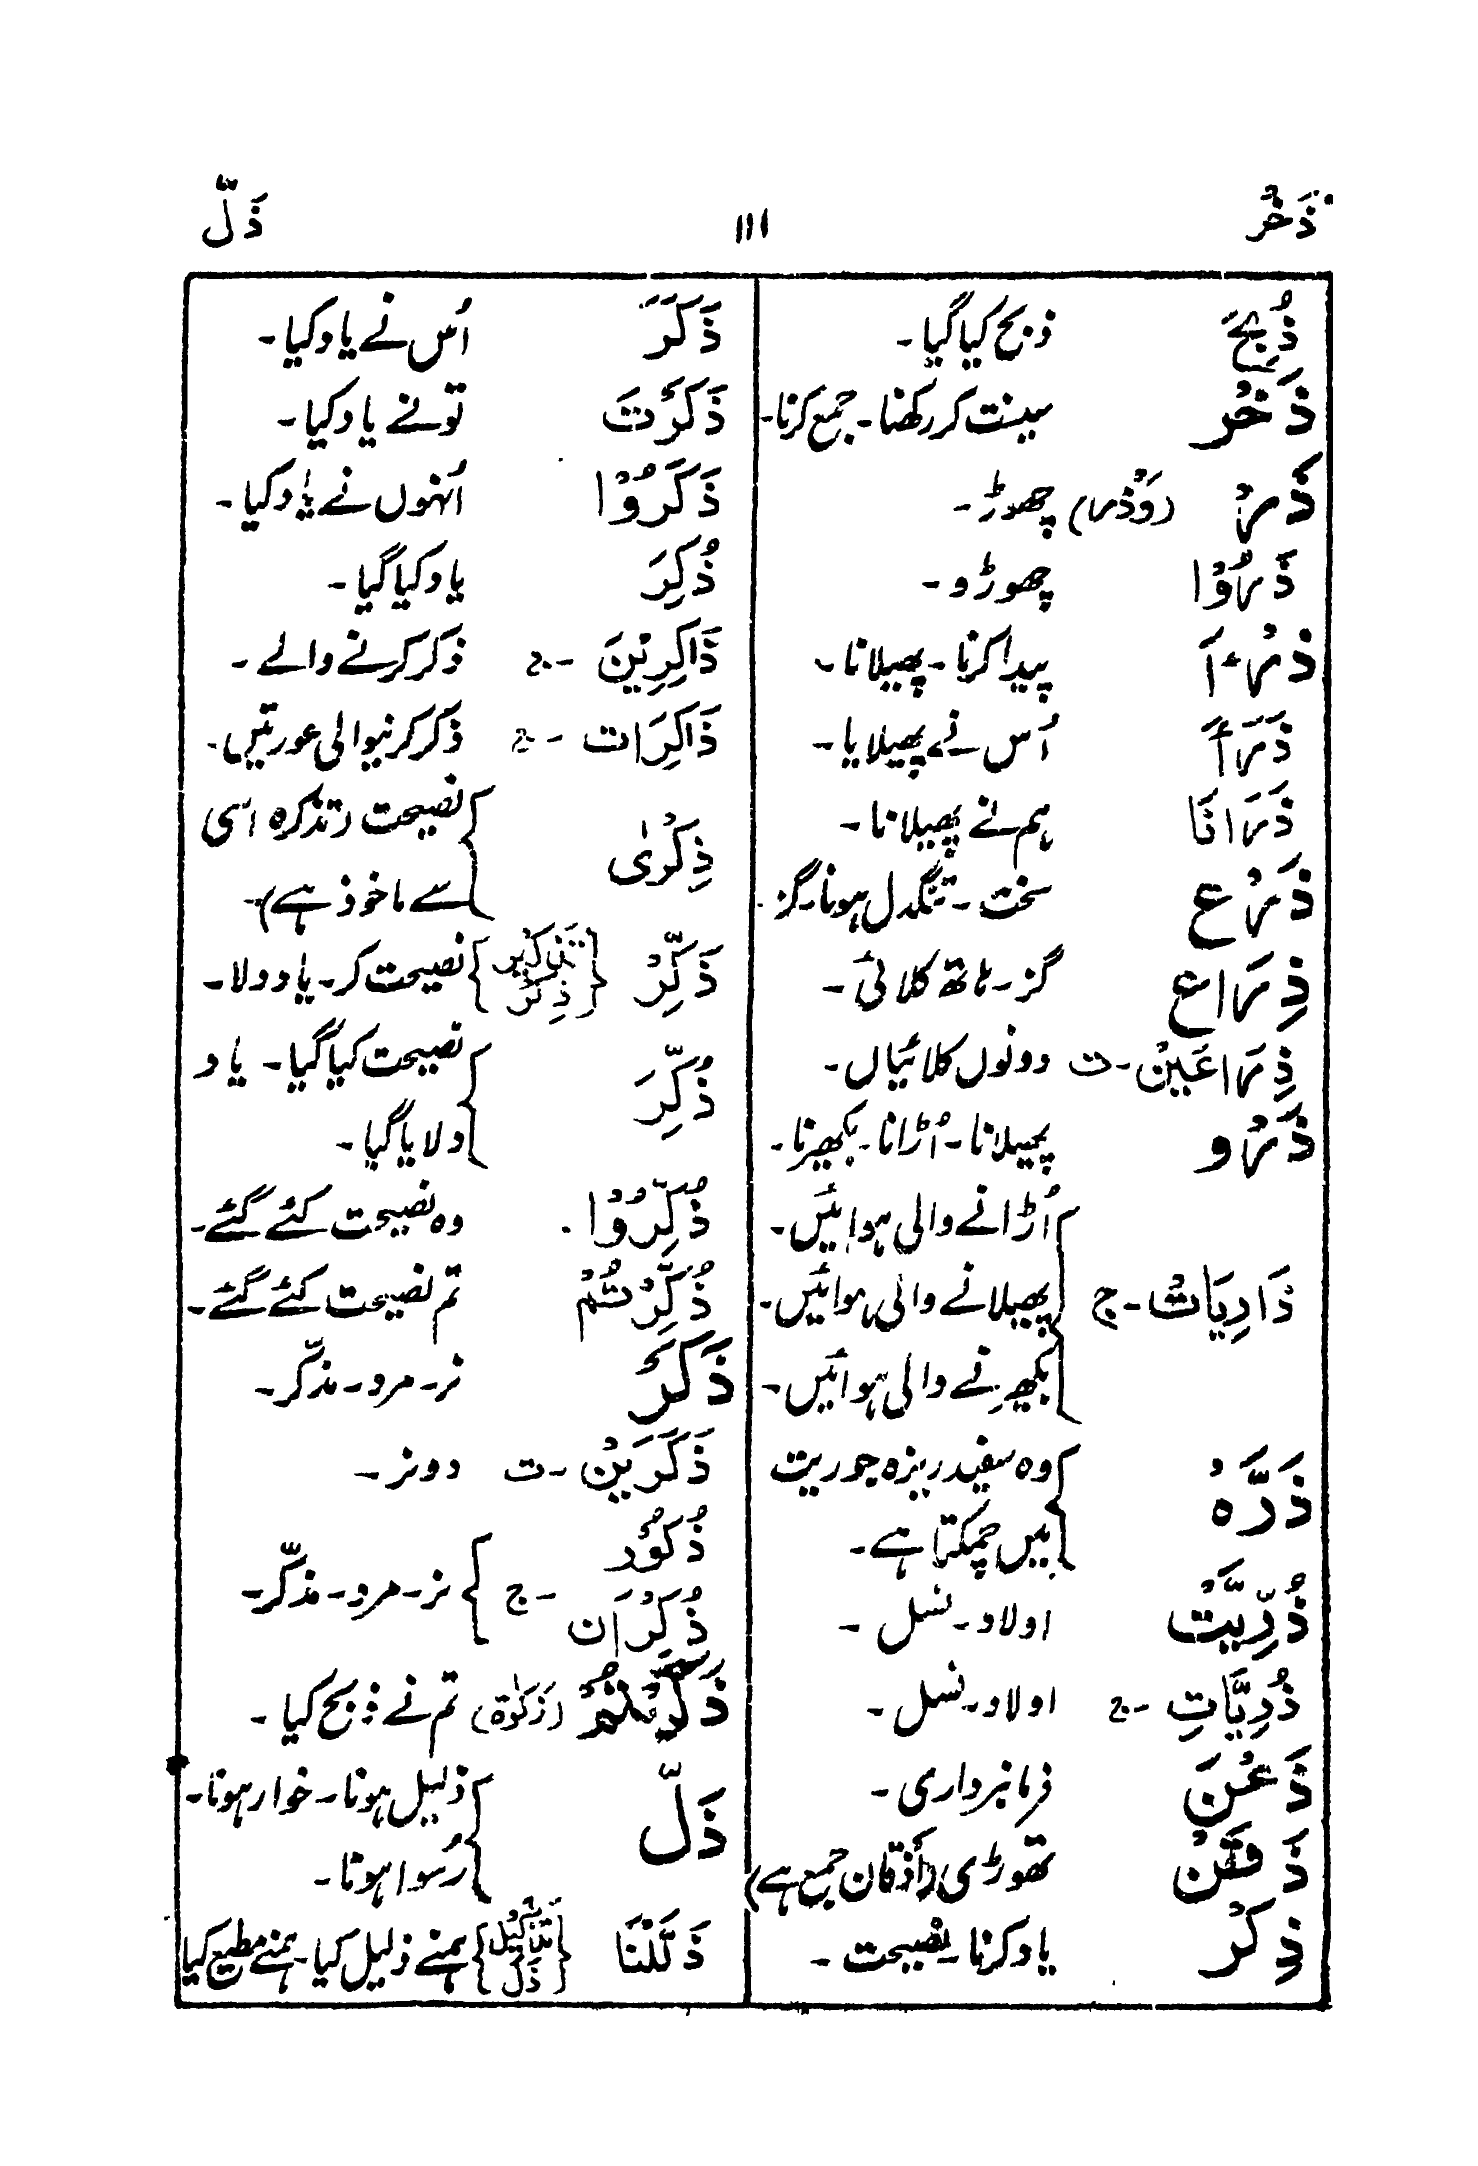 ذَخْر ۱۱۱ ذَلّ
ذُبِحَ ذبح کیا گیا۔
ذَخْر سینت کر رکھنا۔ جمع کرنا۔
ذَرْ (وَذْر) چھوڑ۔
ذَرُوْا چھوڑو۔
ذَرْءاَ پیدا کرنا۔ پھیلانا۔
ذَرَأَ اُس نے پھیلایا۔
ذَرَانَا ہم نے پھیلانا۔
ذَرْع سخت۔ تنگدل ہونا۔ گز۔
ذِرَاع گز۔ ہاتھ کلائی۔
ذِرَاعَیْن۔ ت دونوں کلائیاں۔
ذَرْو پھیلانا۔ اُڑانا۔ بکھیرنا۔
اُڑانے والی ہوائیں۔
ذَارِیَات۔ ج پھیلانے والی ہوائیں۔
بکھیرنے والی ہوائیں۔
ذَرَّہ وہ سفید ریزہ جو ریت
میں چمکتا ہے۔
ذُرِّیَّت اولاد۔ نسل۔
ذُرِّیَّاتِ۔ ج اولاد۔ نسل۔
ذَعْنَ فرمانبرداری۔
ذَقَنْ تھوڑی (أَذقان جمع ہے)
ذِکْر یاد کرنا۔ نصیحت۔
ذَکَرَ اُس نے یاد کیا۔
ذَکَرْتَ تونے یاد کیا۔
ذَکَرُوْا اُنہوں نے یاد کیا۔
ذُکِرَ یاد کیا گیا۔
ذَاکِرِیْنَ۔ ج ذکر کرنے والے۔
ذَاکِرَات۔ ج ذکر کرنیوالی عورتیں۔
ذِکْرٰی نصیحت (تذکرہ اسی
سے ماخوذ ہے)۔
ذَکِّرْ {تَذْکِیر ذِکْر} نصیحت کر۔ یاد دولا۔
ذُکِّرَ نصیحت کیا گیا۔ یاد
دلایا گیا۔
ذُکِّرُوْا وہ نصیحت کئے گئے۔
ذُکِّرْتُمْ تم نصیحت کئے گئے۔
ذَکَرَ نر۔ مرد۔ مذکّر۔
ذَکَرَیْن۔ ت دو نر۔
ذُکُوْر
ذُکْرَان ۔ ج نر۔ مرد۔ مذکّر۔
ذَکَّیْتُمْ (ذَکٰوة) تم نے ذبح کیا۔
ذَلّ ذلیل ہونا۔ خوار ہونا۔
رُسوا ہونا۔
ذَلَّلْنَا {تَذْلِیل ذَلّ} ہمنے ذلیل کیا۔ ہمنے مطیع کیا